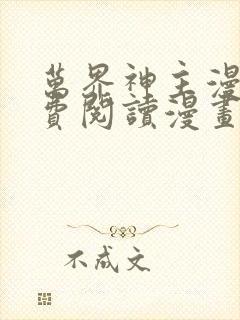 萬界神主漫
費閱讀漫畫
不成文